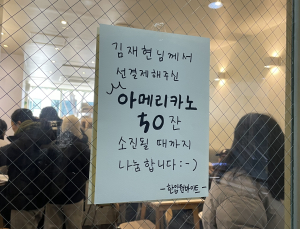 김재현님께서
선결제해주신
아메리카노
50잔
소진될 때까지
나눔합니다:-)